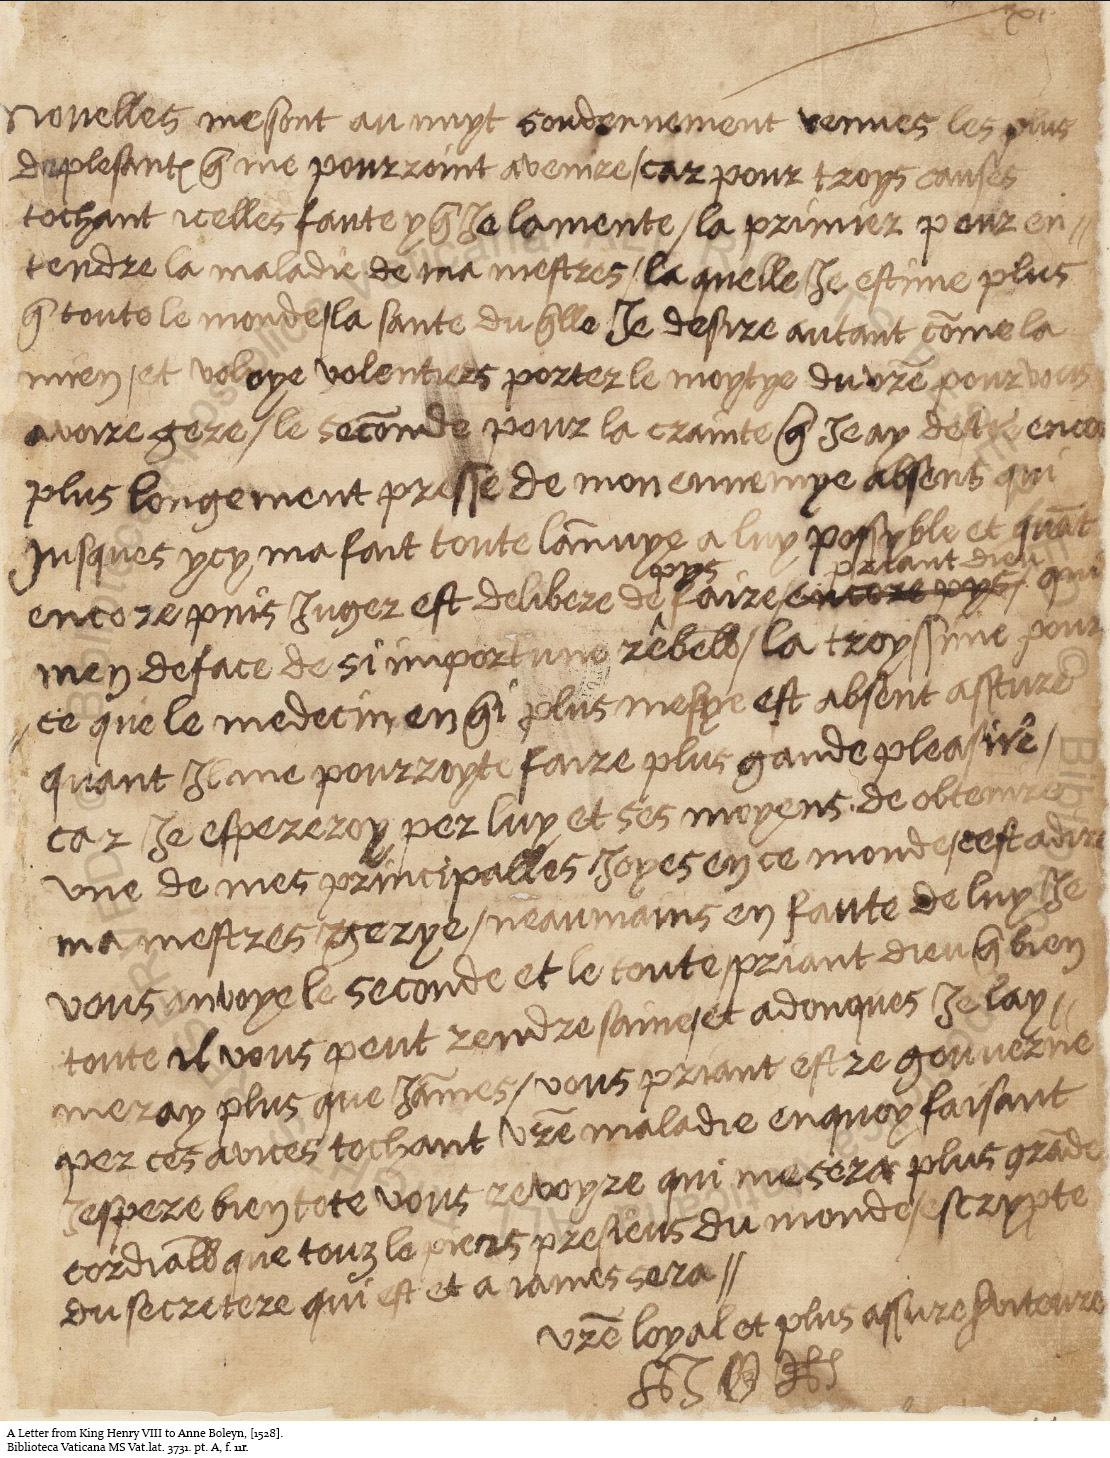 xi
Novelles me sont au nuyt soudennement venues les plus
deplesant que me pourroint avenire/car pour troys causes
tochant icelles faute y que Je lamente/la primier pour en//
tendre la maladie de ma mestres/la quelle Je estime plus
que toute le monde/la sante du quelle Je desire autant cōme la
mien/et voloye volentiers porter le moytye du vr̄e pour vous
avoire gere/le secōnde pour la crainte que Je ay de encor
plus longement presse de mon ennemye absens qui
Jusques ycy ma fait toute lānnuye a luy possyble et quāt
pys priant dieu
encore puis Juger est delibere de faire/encore pys/ qui
men deface de si importune rebell/la troyssime pour
ce que le medecin en qui plus me fye est absent asture
quant Il me pourroyte faire plus gande pleasire/
car Je espereroy per luy et ses moyens de obtenire
une de mes principalles Joyes en ce monde/cest adire
ma mestres gerye/neaumains en faute de luy Je
vous anvoye le seconde et le toute/priant dieu que bien
toute il vous peut rendre saine/et adonques Je lay//
meray plus que Jāmes/vous priant estre gouverne
per ces avices tochant vr̄e maladie enquoy faisant
Jespere bien tote vous revoyre qui me sera plus grāde
cordiall que touz le piers presieus du monde/escrypte
du secretere qui est et a iames sera//
vr̄e loyal et plus assure serviteure
H R
A Letter from King Henry VIII to Anne Boleyn, [1528].
Biblioteca Vaticana MS Vat.lat. 3731. pt. A, f. 11r.